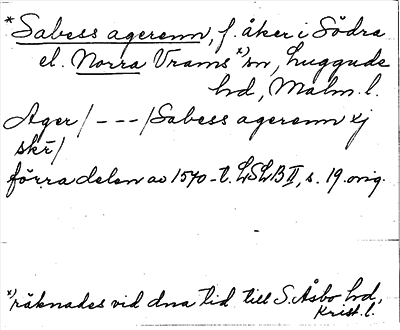 *Sabess agerenn, f. åker i Södra
el. Norra Vrams *)sn, Luggude
hd, Malm. l.
Ager / - - - / Sabess agerenn xj
skr/
förra delen av 1570-t. LSLB II, s. 19. orig.
*) räknades vid dna tid till S. Åsbo hd,
Krist. l.